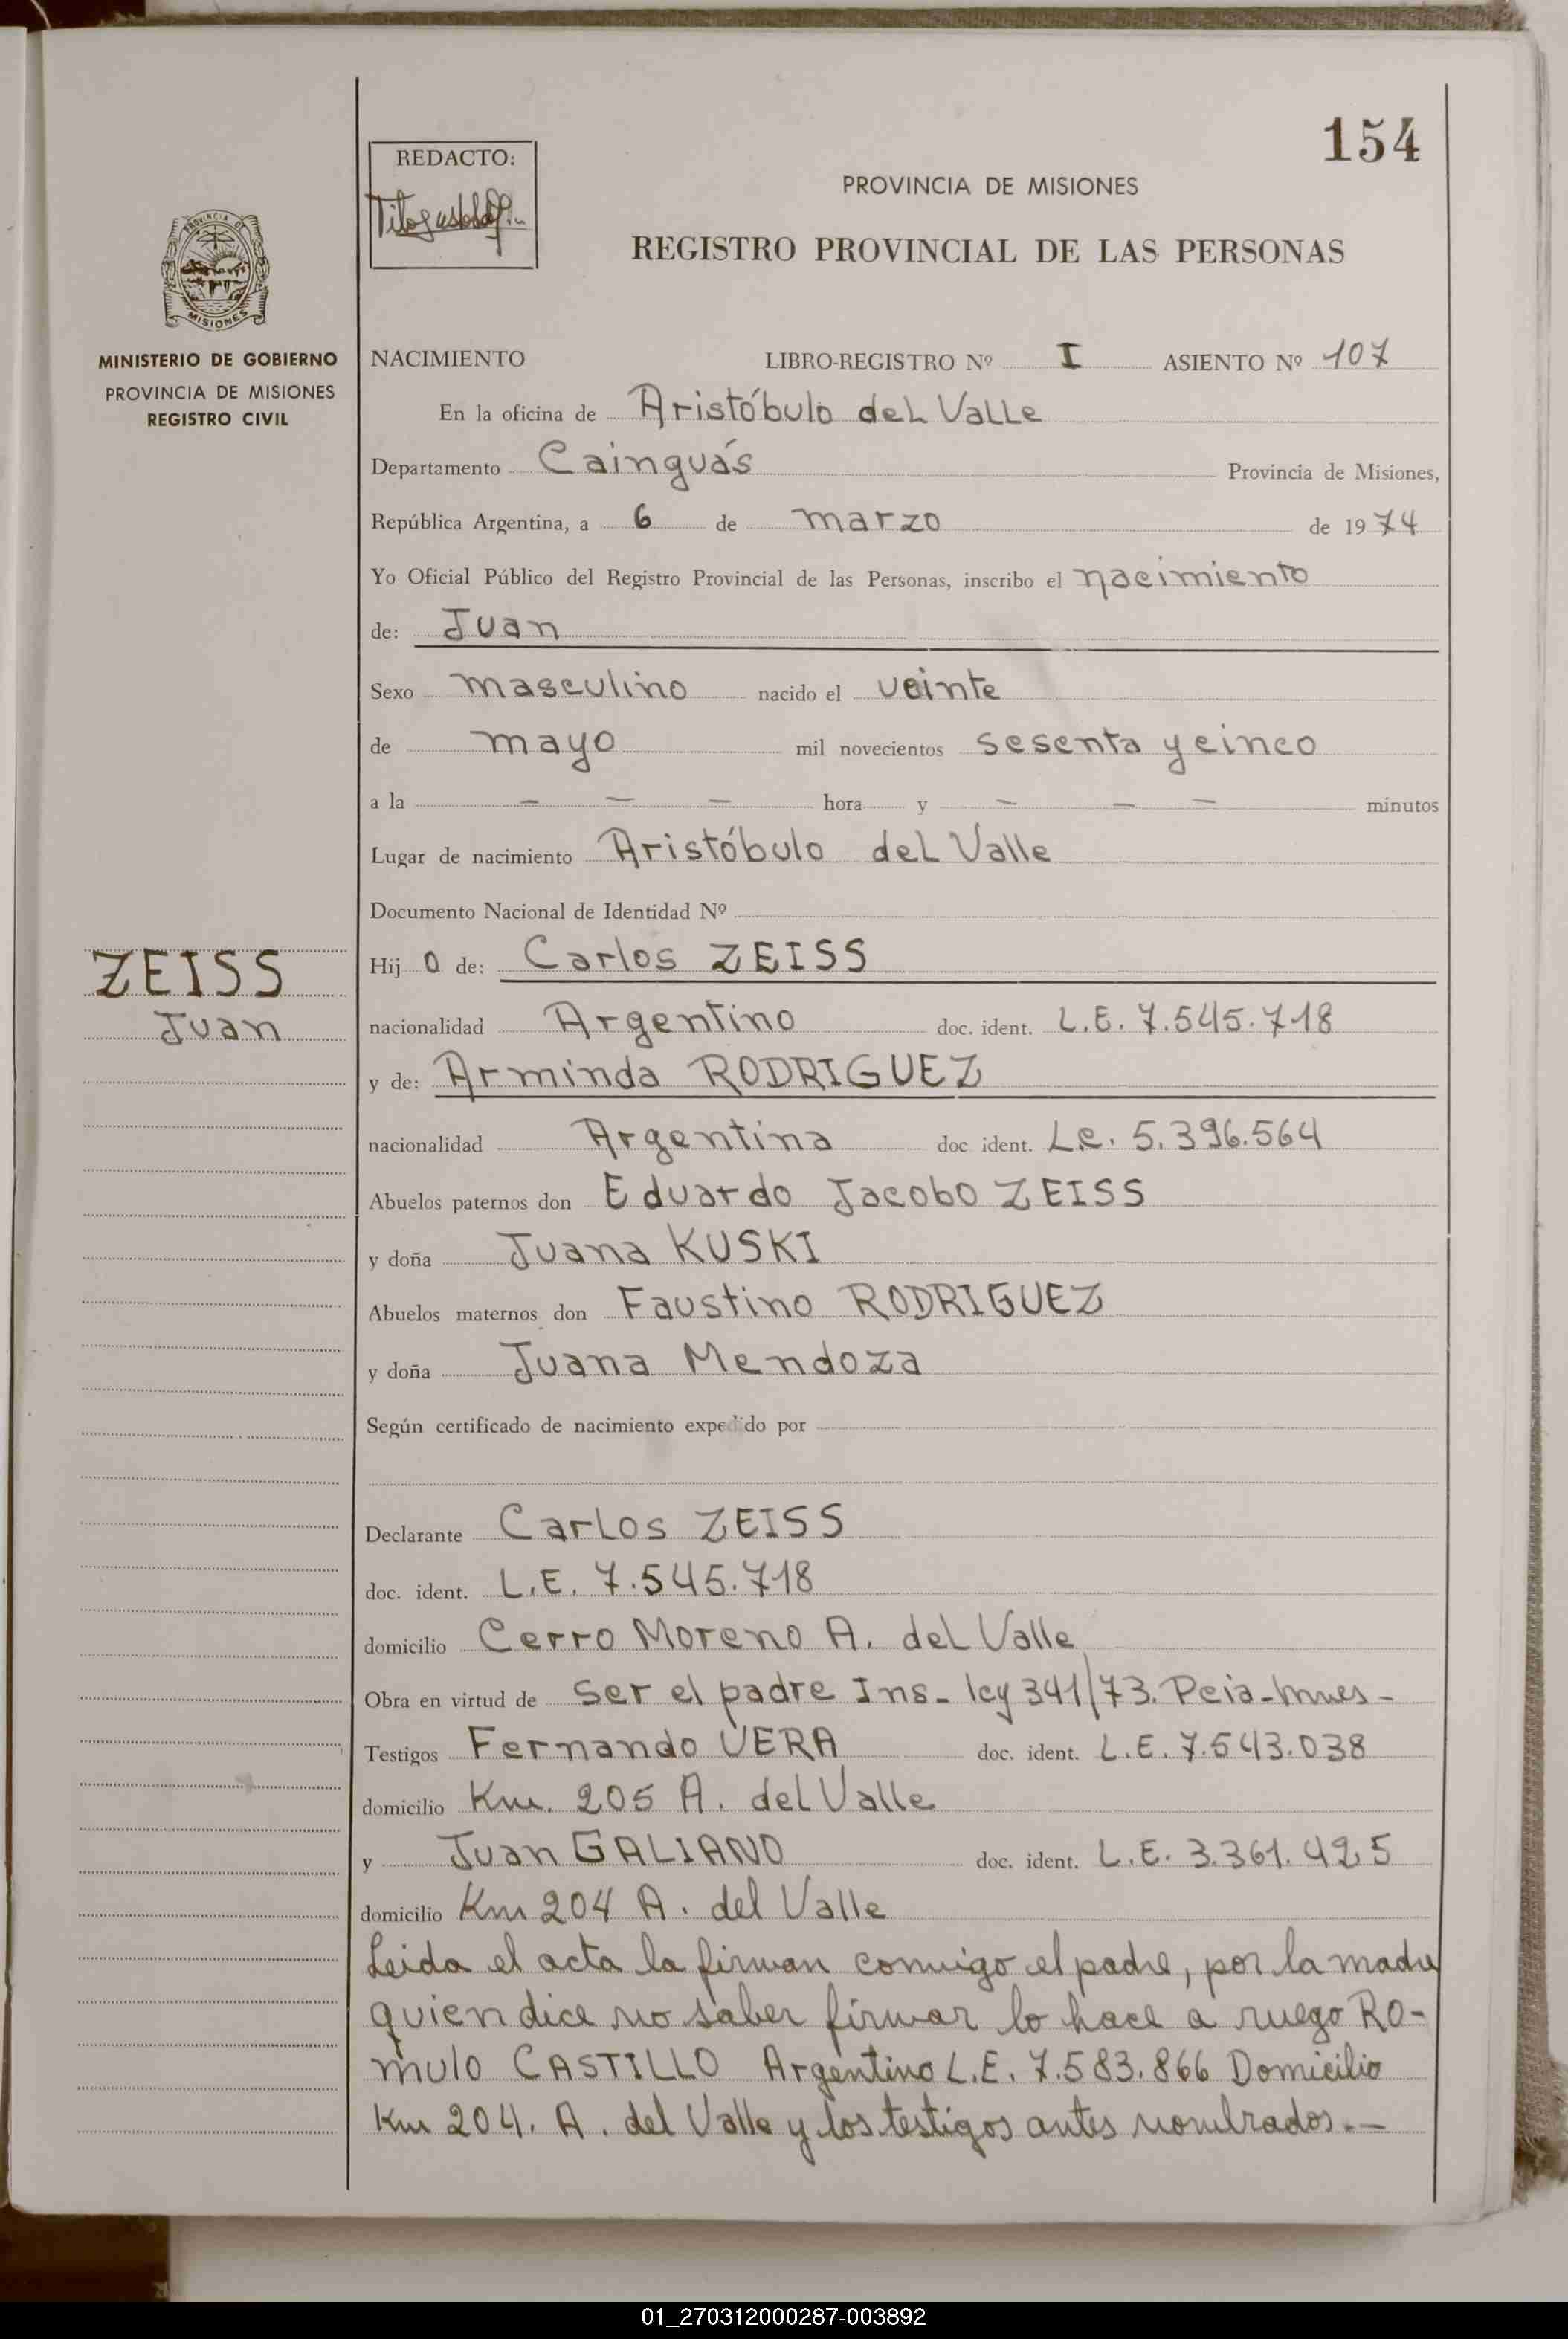 154
REDACTO:
PROVINCIA DE MISIONES
REGISTRO PROVINCIAL DE LAS PERSONAS
PROVINCIA DE
MISIONES
MINISTERIO DE GOBIERNO
PROVINCIA DE MISIONES
REGISTRO CIVIL
NACIMIENTO LIBRO-REGISTRO Nº I ASIENTO Nº 107
En la oficina de Aristóbulo del Valle
Departamento Cainguás Provincia de Misiones,
República Argentina, a 6 de marzo de 1974
Yo Oficial Público del Registro Provincial de las Personas, inscribo el nacimiento
de: Juan
Sexo masculino nacido el veinte
de mayo mil novecientos sesenta y cinco
a la – – – hora y – – – minutos
Lugar de nacimiento Aristóbulo del Valle
Documento Nacional de Identidad Nº
ZEISS
Juan
Hij o de: Carlos ZEISS
nacionalidad Argentino doc. ident. L.E. 7.545.718
y de: Arminda RODRIGUEZ
nacionalidad Argentina doc ident. L.C. 5.396.564
Abuelos paternos don Eduardo Jacobo ZEISS
y doña Juana KUSKI
Abuelos maternos don Faustino RODRIGUEZ
y doña Juana Mendoza
Según certificado de nacimiento expedido por
Declarante Carlos ZEISS
doc. ident. L.E. 7.545.718
domicilio Cerro Moreno A. del Valle
Obra en virtud de ser el padre Ins- ley 341/73. Pcia-
Testigos Fernando VERA doc. ident. L.E. 7.543.038
domicilio Km. 205 A. del Valle
y Juan GALIANO doc. ident. L.E. 3.361.425
domicilio Km 204 A. del Valle
Leida el acta la firman conmigo el padre, por la madre
quien dice no saber firmar lo hace a ruego RO-
mulo CASTILLO Argentino L.E. 7.583.866 Domicilio
Km 204. A. del Valle y los testigos antes nombrados.-
01_270312000287-003892